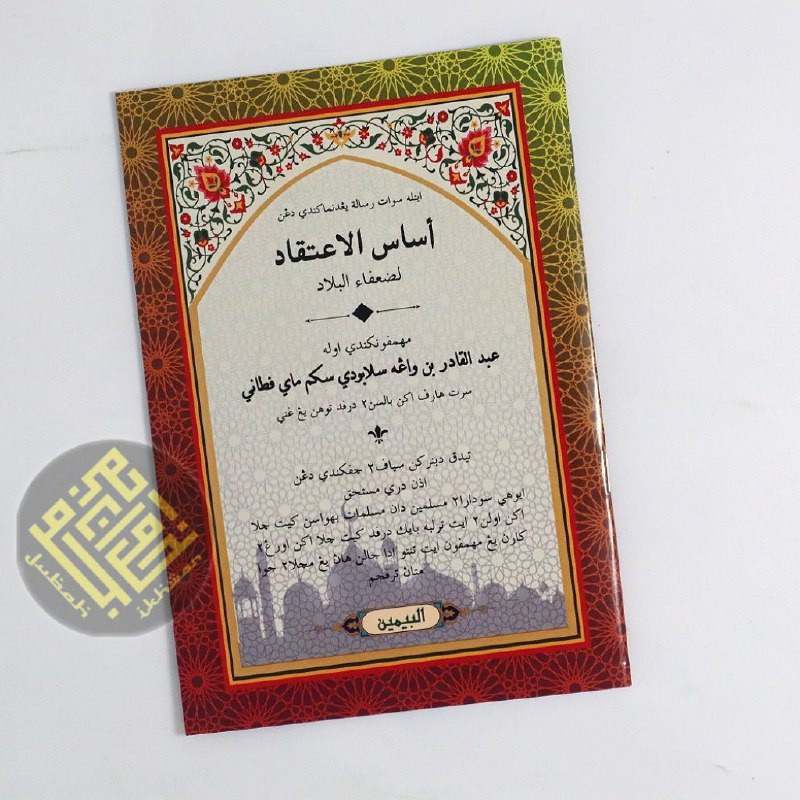 اينله سوات رسالة يڠدنماكندي دڠن
أساس الاعتقاد
لضعفاء البلاد
مهمفونكندي اوله
عبد القادر بن واڠه سلابودي سكم ماي فطاني
سرت هارف اكن بالسن٢ درفد توهن يڠ غني
تيدق دبنركن سياف٢ جفكندي دڠن
اذن دري مستحق
ايوهي سودارا٢ مسلمين دان مسلمات بهواسن كيت جلا
اكن اولن٢ ايت ترلبه بايك درفد كيت جلا اكن اورڠ٢
كارن يڠ مهمفون ايت تنتو ادا جالن هاڽ يڠ مجلا٢ جوا
متاڽ ترفجم
البيمين
Jubah
ikhwan